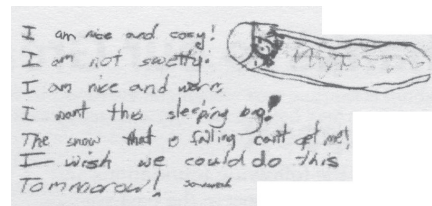 I am nice and cozy!
I am not swetty!
I am nice and warm,
I want this sleeping bag!
The snow that is falling can't get me!
I wish we could do this
Tommorow!